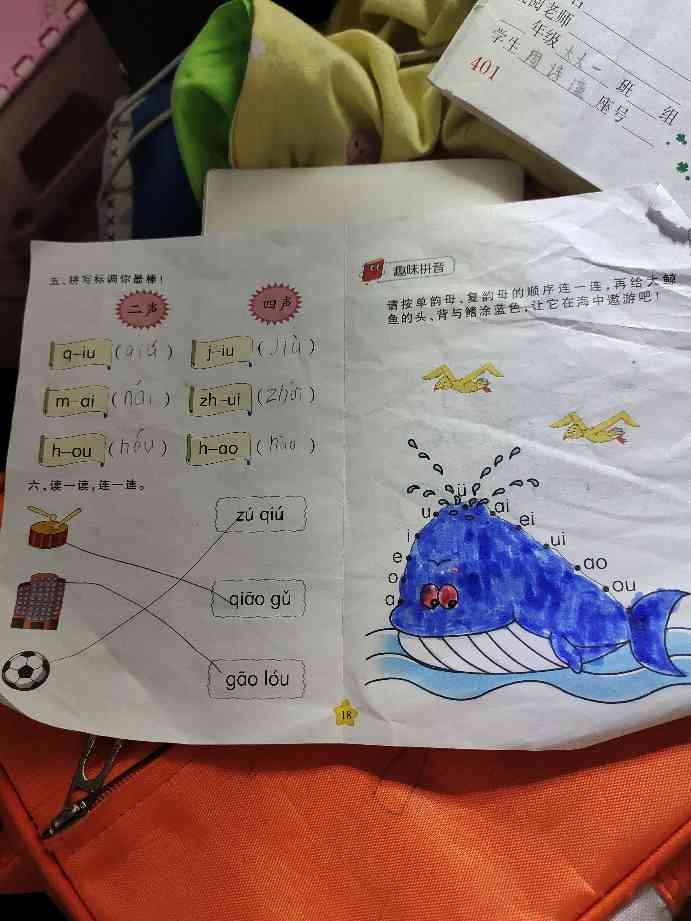 老师
年级 大大一 班 组
学生 座号
401
五、拼写标调你最棒!
二声 四声
q-iu (qiú) j-iu (jiù)
m-ai (nái) zh-ui (zhùi)
h-ou (hóu) h-ao (hào)
六、读一读,连一连。
zú qiú
qiāo gǔ
gāo lóu
18
趣味拼音
请按单韵母、复韵母的顺序连一连,再给大鲸
鱼的头、背与鳍涂蓝色,让它在海中遨游吧!
a
o
e
i
u
ü
ai
ei
ui
ao
ou